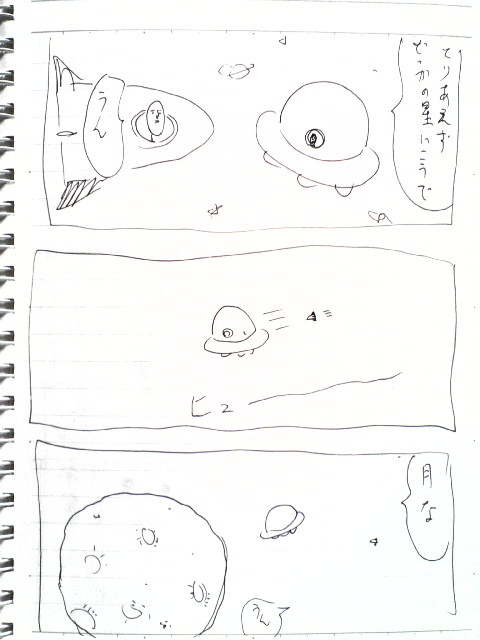 とりあえず
どっかの星いこうで
うん
ビュー
月な
うん